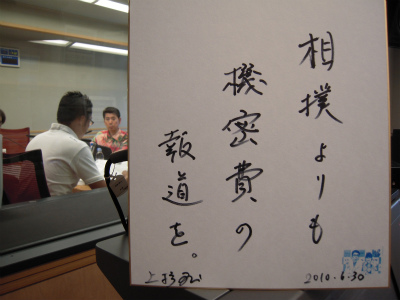 相撲よりも
機密費の
報道を。
上杉隆
2010.6.30